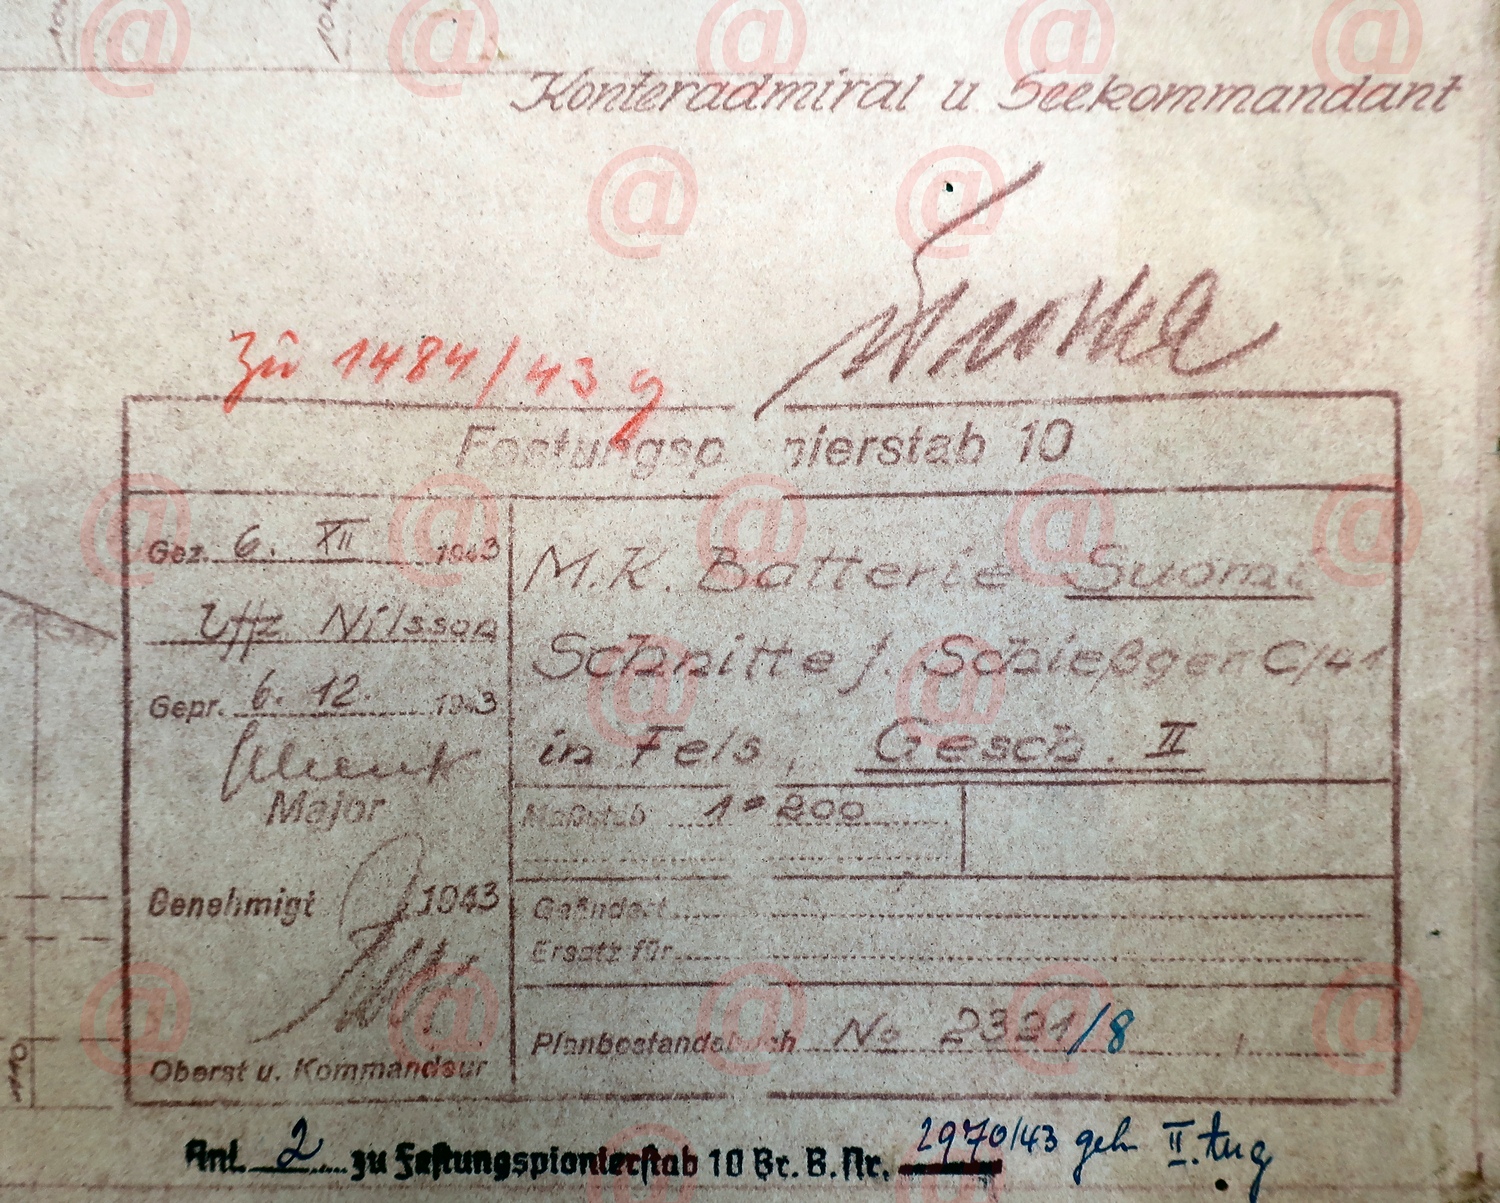 Konteradmiral u Seekommandant
Zu 1484/43 g
Festungsp nierstab 10
Gez. 6. XII 1943
Uffz Nilsson
Gepr. 6. 12. 1943
Schenk
Major
Genehmigt 1943
Oberst u. Kommandeur
M.K. Batterie Suomi
Schnitte f. Schießger C/41
in Fels, Gesch. II
Maßstab 1 = 200
Geändert
Ersatz für
Planbestandsbuch No 2321/8
Anl. 2 zu Festungspionierstab 10 Br. B. Nr. 2970/43 geh II. Aug
110